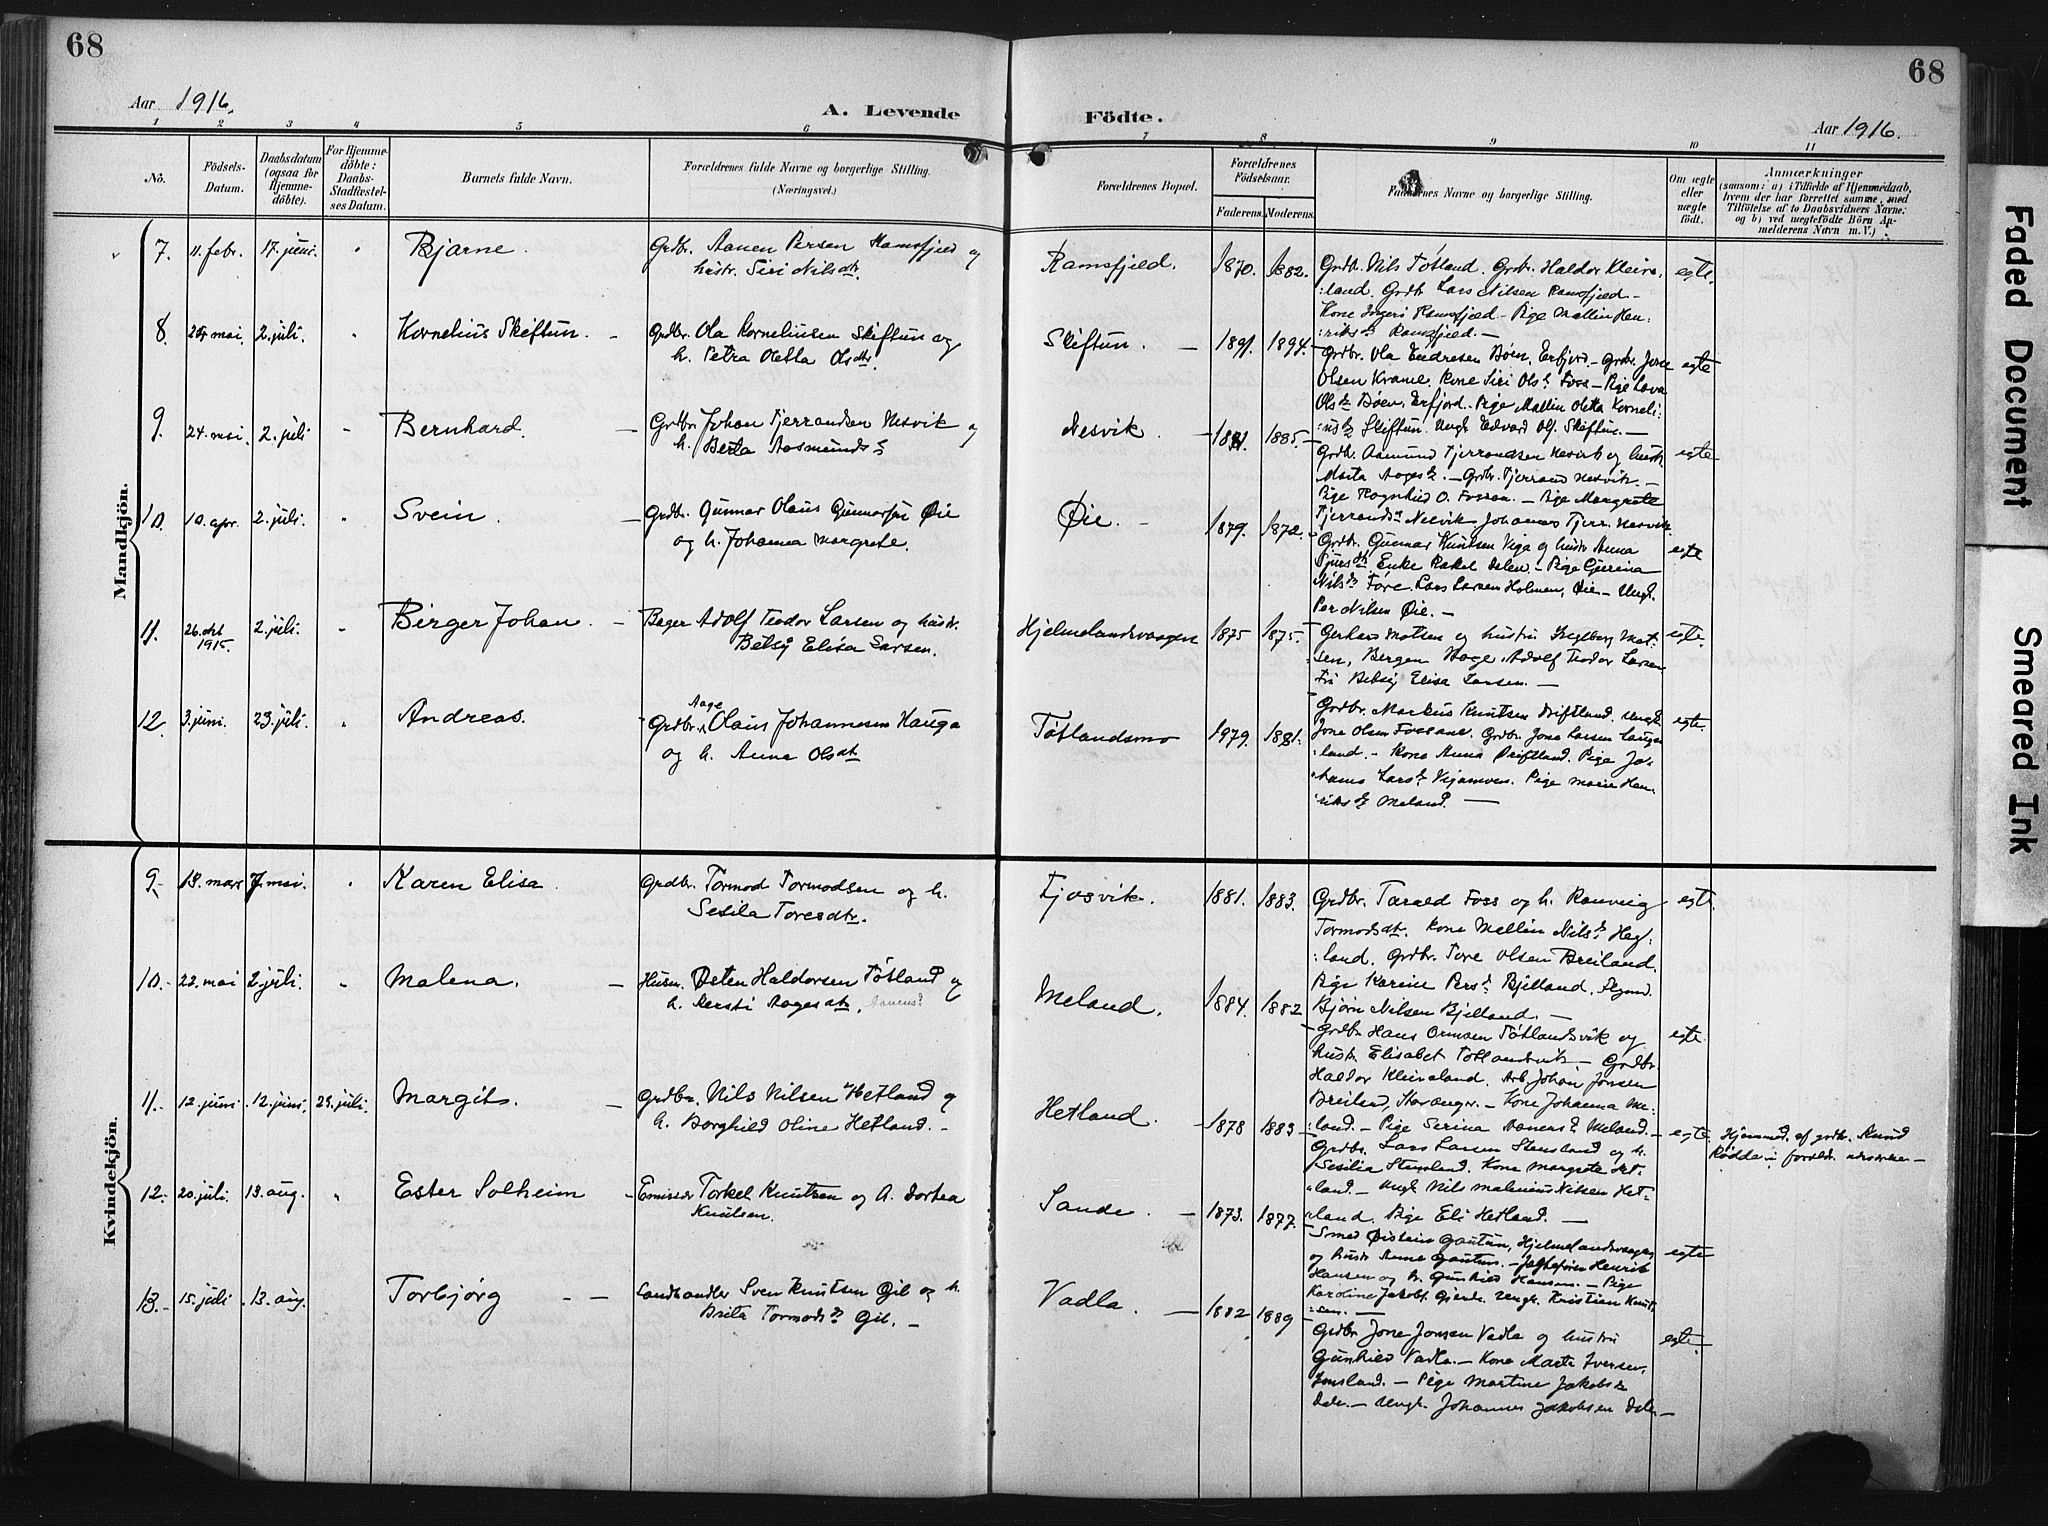 68
68
Aar 1916.
A. Levende
Födte.
Aar 1916.
1 2 3 4 5 6 7 8 9 10 11
Nô.
Födsels-
Datum.
Daabsdatum
(ogsaa for
Hjemme-
döbte).
For Hjemme-
döbte:
Daabs-
Stadfæstel-
ses Datum.
Barnets fulde Navn.
Forældrenes fulde Navne og borgerlige Stilling.
(Næringsvei.)
Forældrenes Bopæl.
Forældrenes
Födselsaar.
Faderens. Moderens.
Faddernes Navne og borgerlige Stilling.
Om ægte
eller
uægte
födt.
Anmærkninger
(saasom: a) i Tilfælde af Hjemmedaab,
hvem der har forrettet samme, med
Tilföielse af to Daabsvidners Navne;
og b) ved uægtefödte Börn An-
melderens Navn m. V.)
Mandkjön.
7. 11. febr. 17. juni. " Bjarne. Grdbr. Aanen Persen Ramsfjeld og
hustr. Siri Nilsdtr.
Ramsfjeld. 1870. 1882. Grdbr. Nils Tøtland. Grdbr. Haldor Kleive-
:land. Grdb Lars Nilsen Ramsfjeld -
Kone Ingeri Ramsfjeld - Pige Mallin Hen-
:riksdr Ramsfjeld. -
egte.
8. mai. 2. juli. " Kornelius Skiftun. - Grdbr. Ola Korneliusen Skiftun og
h. Petra Oletta Olsdtr.
Skiftun. - 1891. 1894. Grdbr. Ola Endresen Bøen, Erfjord - Grdbr. Jone
Olsen Krame. Kone Siri Olsdr Foss - Pige
Olsdr Bøen, Erfjord. Pige Mallin Oletta Korneli-
:usdr Skiftun. Ungk. Edvard Ols. Skiftun. -
egte
9. 24. mai. 2. juli " Bernhard. Grdbr. Johan Tjerrandsen Nesvik og
h. Berta Aasmundsdr
Nesvik. - 1881. 1885. Grdbr. Aasmund Tjerrandsen Nesvik og hustr.
Marta Aagesdr. - Grdbr. Tjerrand Nesvik. -
Pige Ragnhild O. Fossan. - Pige Margrete
Tjerrandsdr Nesvik Johannes Tjerr. Nesvik.
egte
10. 10. apr. 2. juli. " Svein. - Grdbr. Gunnar Olaus Gunnarsen Øie
og h. Johanna Margrete.
Øie. - 1879. 1872. Grdbr. Gunnar Knutsen Viga og hustr Anna
Enke Rakel Dalen - Pige Gurina
Nilsdr Føre. Lars Larsen Holmen, Øie - Ungk.
Per Nilsen Øie. -
egte
11. 26. okt
1915. 2. juli. " Birger Johan. - Bager Adolf Teodor Larsen og hustr.
Betsy Elisa Larsen.
Hjelmelandsvaagen 1875 1875. Gerhard Matsen og hustru Ingeborg Mat-
:sen, Bergen Bage. Adolf Teodor Larsen
Fru Betsy Elisa Larsen. -
egte.
12. 3. juni. 23. juli. " Andreas. Aage
Grdbr. Olaus Johannesen Hauga
og h. Anna Olsdtr
Tøtlandsmo 1979. 1881. Grdbr. Markus Knutsen Driftland. Ungk.
Jone Olsen Fossane. Grdbr. Jone Larsen Lauge
:land. - Kone Anna Driftland. Pige Jo-
:hanna Larsdr. Pige Marie Hen-
:riksdr Meland. -
egte.
Kvindekjön.
9. - 18. mars 7. mai. " Karen Elisa. Grdbr. Tormod Tormodsen og h.
Sesila Toresdtr.
Fjosvik. 1881. 1883. Grdbr. Tarald Foss og h. Ranveig
Tormodsdtr. Kone Mallin Nilsdr Heg-
:land. Grdbr. Tore Olsen Breiland.
Pige Karine Persdr Bjelland.
Bjørn Nilsen Bjelland. -
egte.
10. - 22. mai 2. juli. " Malena. - Husm. Østen Haldorsen Tøtland og
h. Kersti Aagesdtr. Aanensdr
Meland. 1884. 1882 Grdbr. Hans Ormsen Tøtlandsvik og
hustr. Elisabet Tøtlandsvik - Grdbr.
Haldor Kleiveland. Arb. Johan Jonsen
Breiland, Stavanger. - Kone Johanna Me-
:land. - Pige Serina Aanensdr Meland. -
egte.
11. - 12. juni. 12. juni. 23. juli. Margit. - Grdbr. Nils Nilsen Hetland og
h. Borghild Oline Hetland. -
Hetland. - 1878 1883 Grdbr. Lars Larsen Stensland og h.
Sesilia Stensland. Kone Margrete Het-
:land. - Ungk. Nils Malenius Nilsen Het-
:land. Pige Eli Hetland. -
egte. Hjemmed. af grdbr. Knud
Rødde i foreldr. nærværelse -
12. - 20. juli. 13. aug. " Ester Solheim - Emissær Torkel Knutsen og h. Dortea
Knutsen.
Sande. - 1873. 1877. Smed Øistein Gautun, Hjelmelandsvaagen
og hustr. Anna Gautun. - Henrik
Hansen og h. Gunhild Hansen. - Pige
Karoline Jakobs. Gjerde. Ungk. Kristian Knut-
:sen. -
egte
13. - 15. juli. 13. aug. Torbjørg - - Landhandler Sven Knutsen Gil og h.
Brita Tormodsdr Gil. -
Vadla. - 1882 1889 Grdbr. Jone Jonsen Vadla og hustru
Gunhild Vadla. - Kone Marta Iversen,
Jonsland. - Pige Martine Jakobsdr
Dale. - Ungk. Johannes Jakobsen Dale -
egte.
Faded Document
Smeared Ink